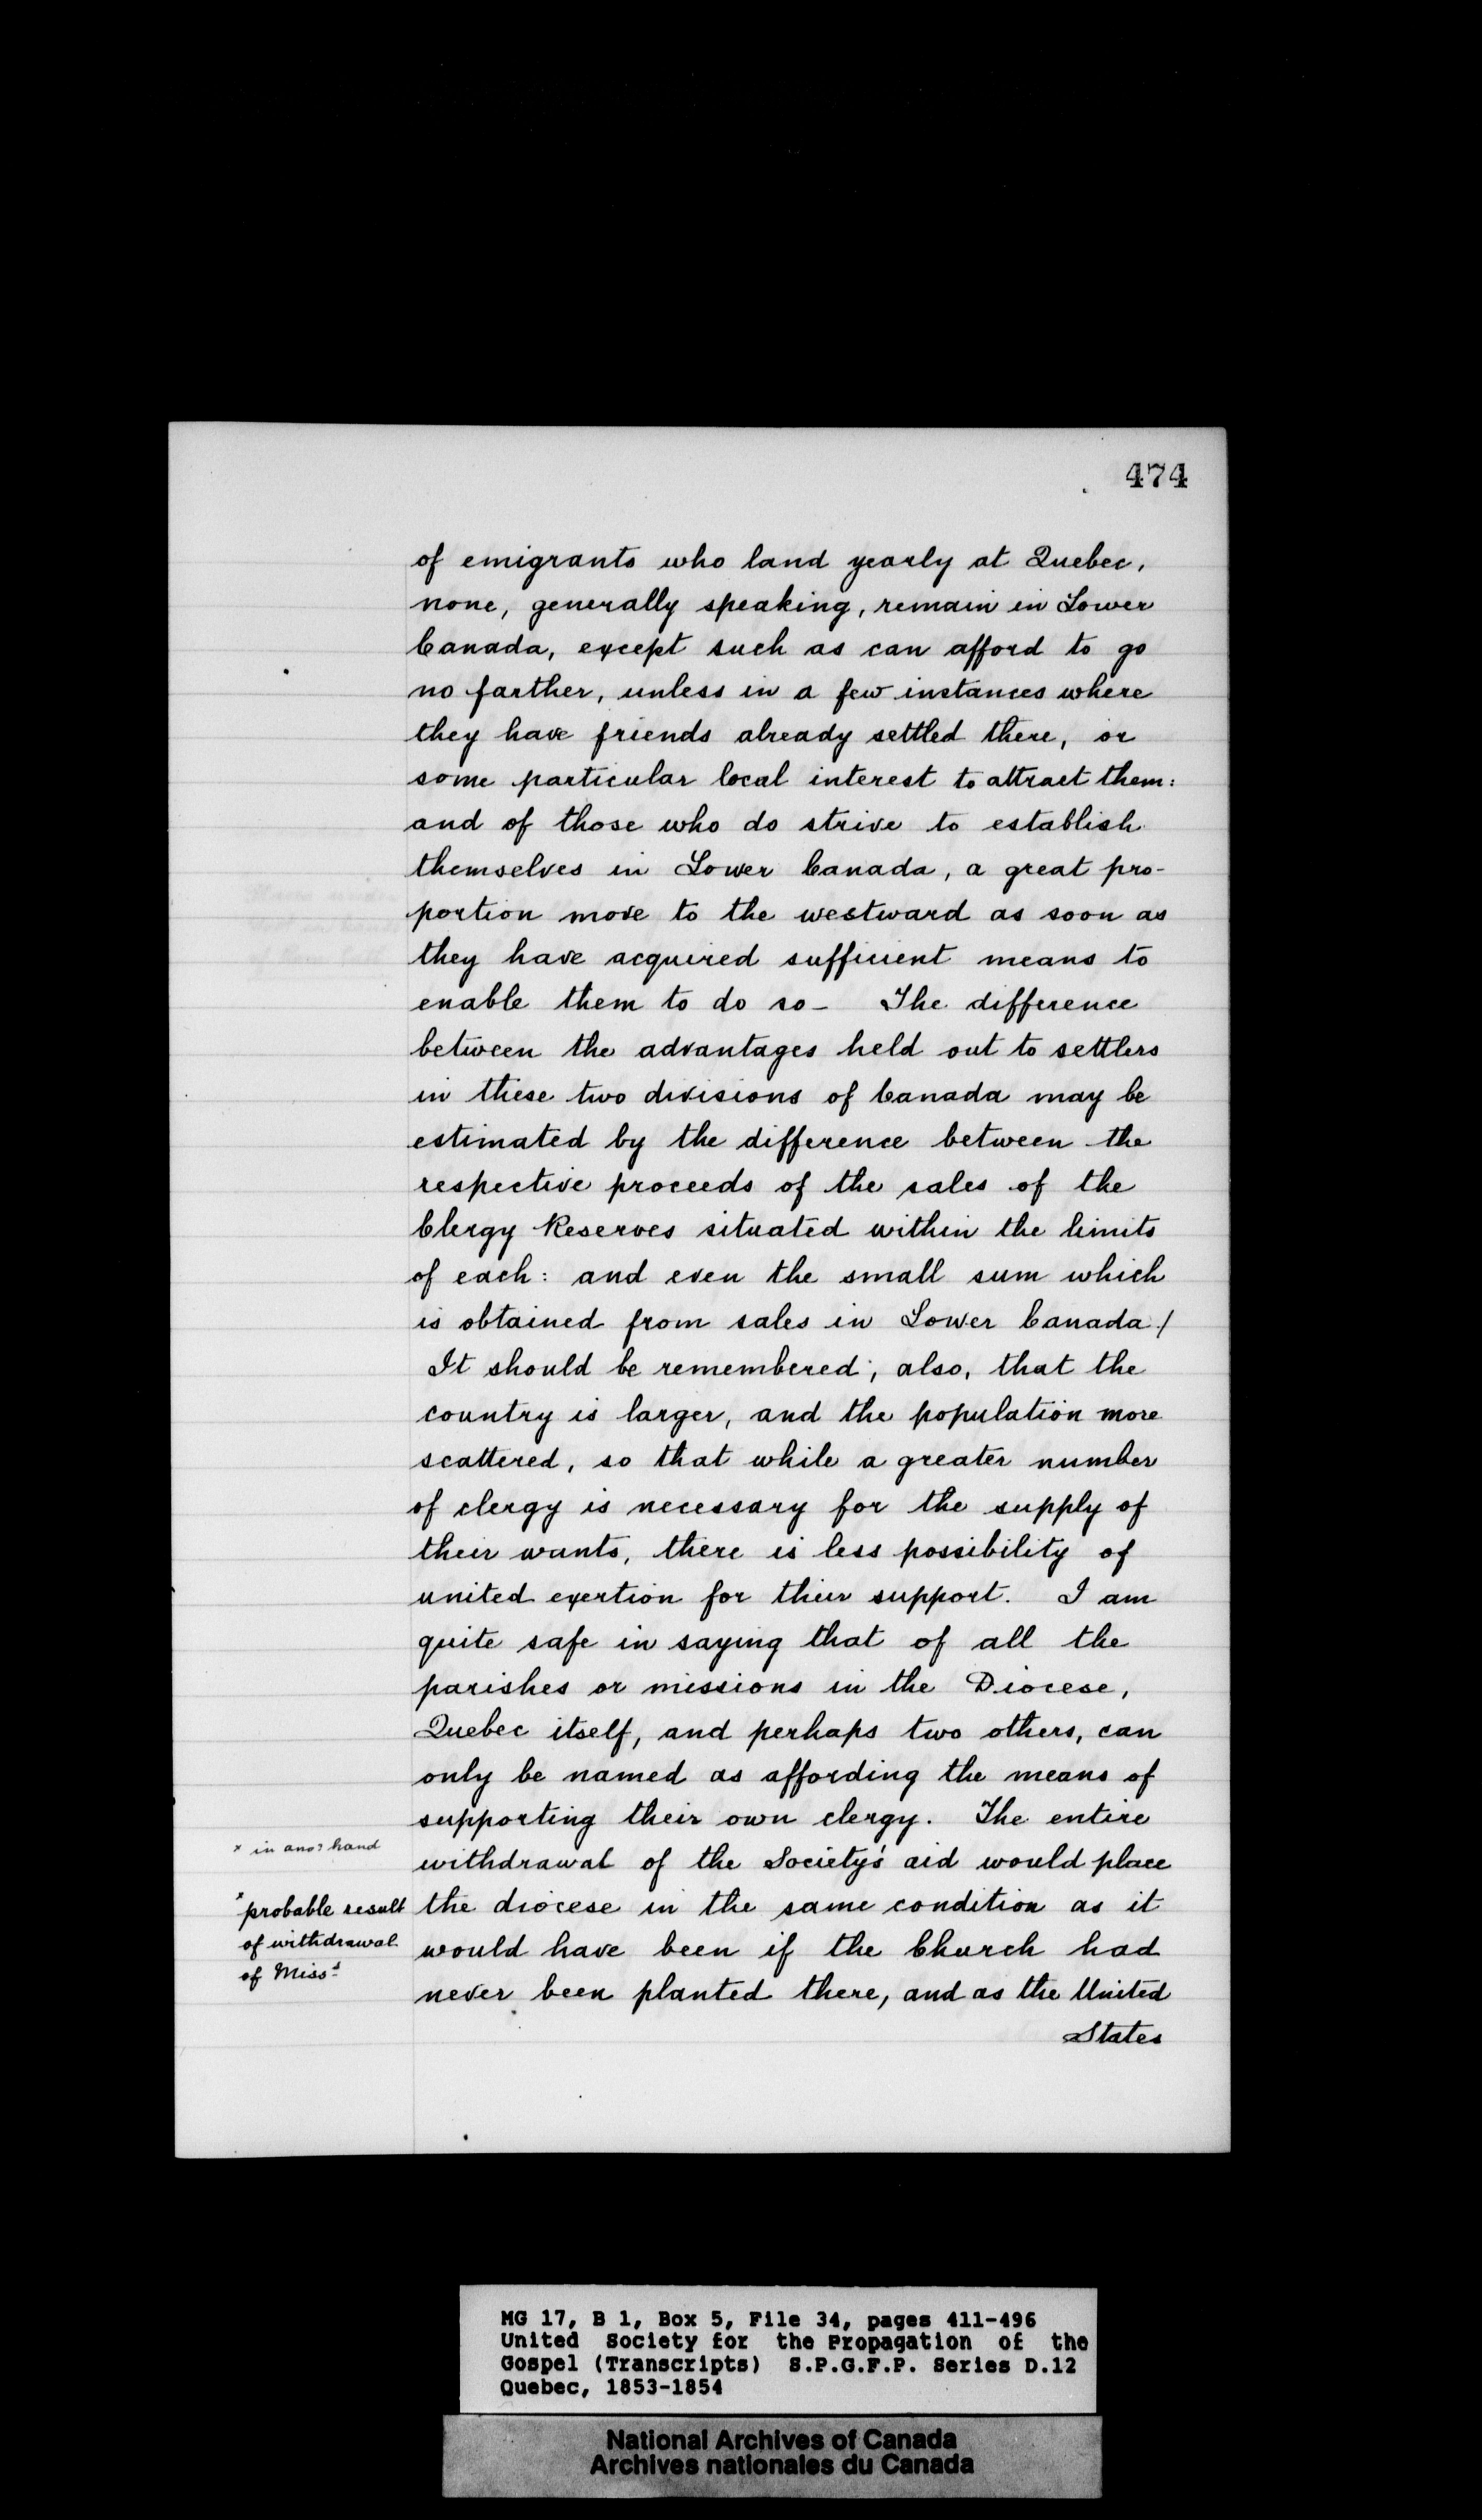 474
of emigrants who land yearly at Quebec,
none, generally speaking, remain in Lower
Canada, except such as can afford to go
no farther, unless in a few instances where
they have friends already settled there, or
some particular local interest to attract them:
and of those who do strive to establish
themselves in Lower Canada, a great pro-
portion move to the westward as soon as
they have acquired sufficient means to
enable them to do so - The difference
between the advantages held out to settlers
in these two divisions of Canada may be
estimated by the difference between the
respective proceeds of the sales of the
Clergy Reserves situated within the limits
of each: and even the small sum which
is obtained from sales in Lower Canada /
It should be remembered, also, that the
country is larger, and the population more
scattered, so that while a greater number
of clergy is necessary for the supply of
their wants, there is less possibility of
united exertion for their support. I am
quite safe in saying that of all the
parishes or missions in the Diocese,
Quebec itself, and perhaps two others, can
only be named as affording the means of
supporting their own clergy. The entire
withdrawal of the Society's aid would place
the diocese in the same condition as it
would have been if the Church had
never been planted there, and as the United
States
x in anor hand
x probable result
of withdrawal
of Miss.s
MG 17, B 1, Box 5, File 34, pages 411-496
United Society for the Propagation of the
Gospel (Transcripts) S.P.G.F.P. Series D.12
Quebec, 1853-1854
National Archives of Canada
Archives nationales du Canada